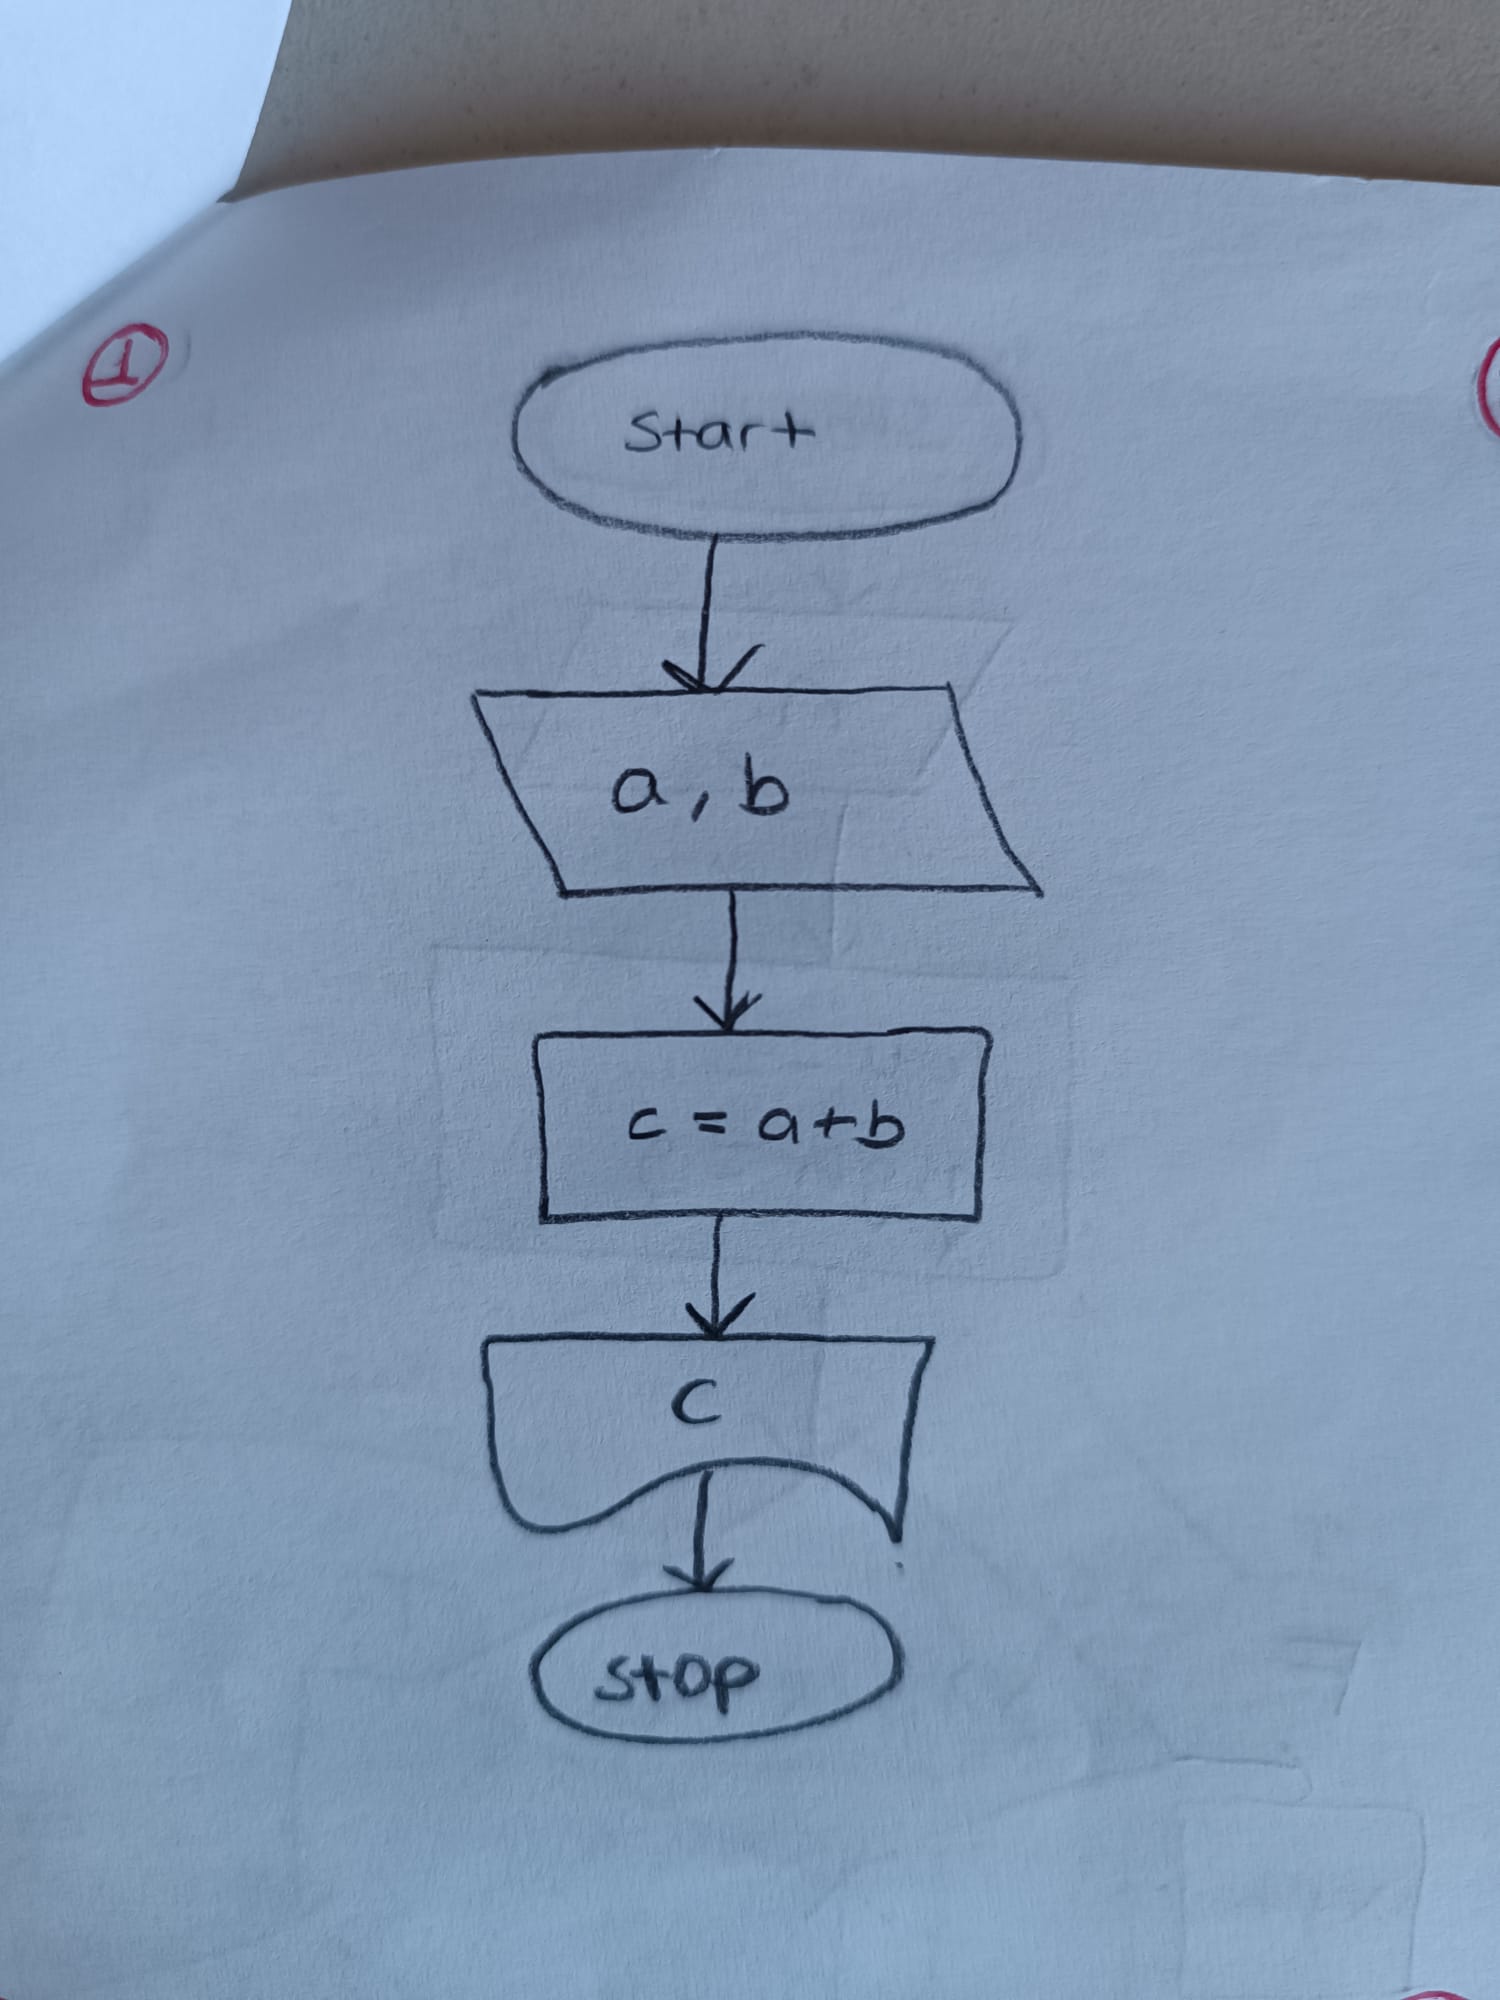 1
Start
a, b
c = a+b
c
stop